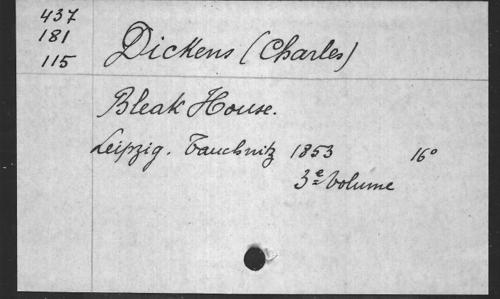 437
181
115
Dickens (Charles)
Bleak House.
Leipzig. Tauchnitz 1853 16°
3e Volume